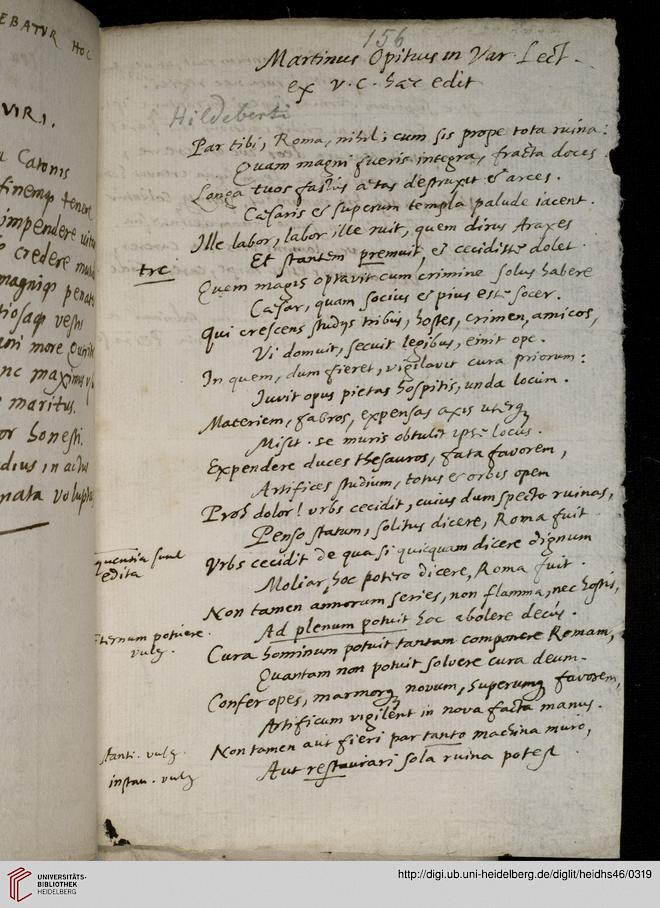 EBATUR HOC
VIRI.
Catonis
finemq tenere
impendere vita
credere mu
magniq penat
tiosaq vestis
more Quirit
nc maximus
maritus.
or honesti.
dius in actus
nata volupta
156
Martinus Opitius in Var. Lect.
ex v. c. hæc edit
Hildeberti
Par tibi, Roma, nihil; cum sis prope tota ruina:
Quam magni fueris integra, fracta doces.
Longa tuos fastus ætas destruxit et arces.
Cæsaris et superum templa palude iacent.
Ille labor, labor ille ruit, quem dirus Araxes
Et stantem premuit, et cecidisse dolet.
Quem magis optavit cum crimine solus habere
Cæsar, quam socius et pius esse socer.
Qui crescens studys tribus, hostes, crimen, amicos,
Vi domuit, secuit legibus, emit ope.
In quem, dum fieret, vigilavit cura priorum:
Iuvit opus pietas hospitis, unda locum.
Materiem, fabros, expensas axis uterq
Misit. se muris obtulit ipse locus.
Expendere duces thesauros, fata favorem,
Artifices studium, totus et orbis opem
Proh dolor! urbs cecidit, cuius dum specto ruinas,
Penso statum, solitus dicere, Roma fuit.
quentia sunt
edita
Urbs cecidit de qua si quicquam dicere dignum
Moliar, hoc potero dicere, Roma fuit.
Non tamen annorum series, non flamma, nec hostis,
Ad plenum potuit hoc abolere decus.
potuere.
vulg.
Cura hominum potuit tantam componere Romam,
Quantam non potuit solvere cura deum.
Confer opes, marmorq novum, superumq favorem,
Artificum vigilent in nova facta manus.
stanti. vulg.
Non tamen aut fieri par tanto machina muro,
instau. vulg
Aut restaurari sola ruina potest.
UNIVERSITÄTS-
BIBLIOTHEK
HEIDELBERG
http://digi.ub.uni-heidelberg.de/diglit/heidhs46/0319